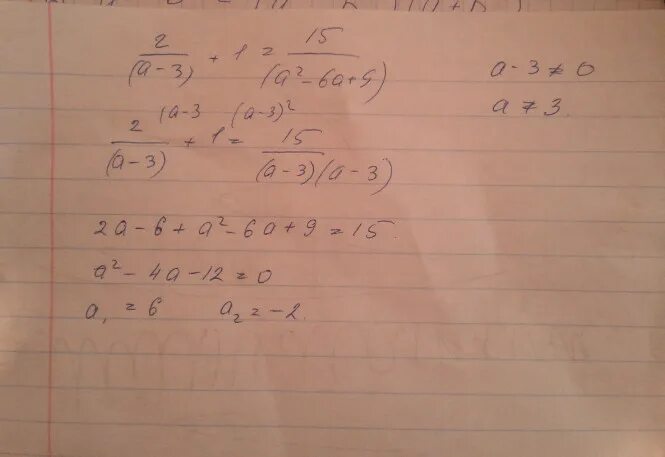 2/(a-3) + 1 = 15/(a²-6a+9)
a-3 ≠ 0
a ≠ 3.
2 (a-3 /(a-3) + 1 (a-3)² = 15/(a-3)(a-3)
2a-6+a²-6a+9=15.
a²-4a-12=0
a₁ = 6 a₂ = -2.